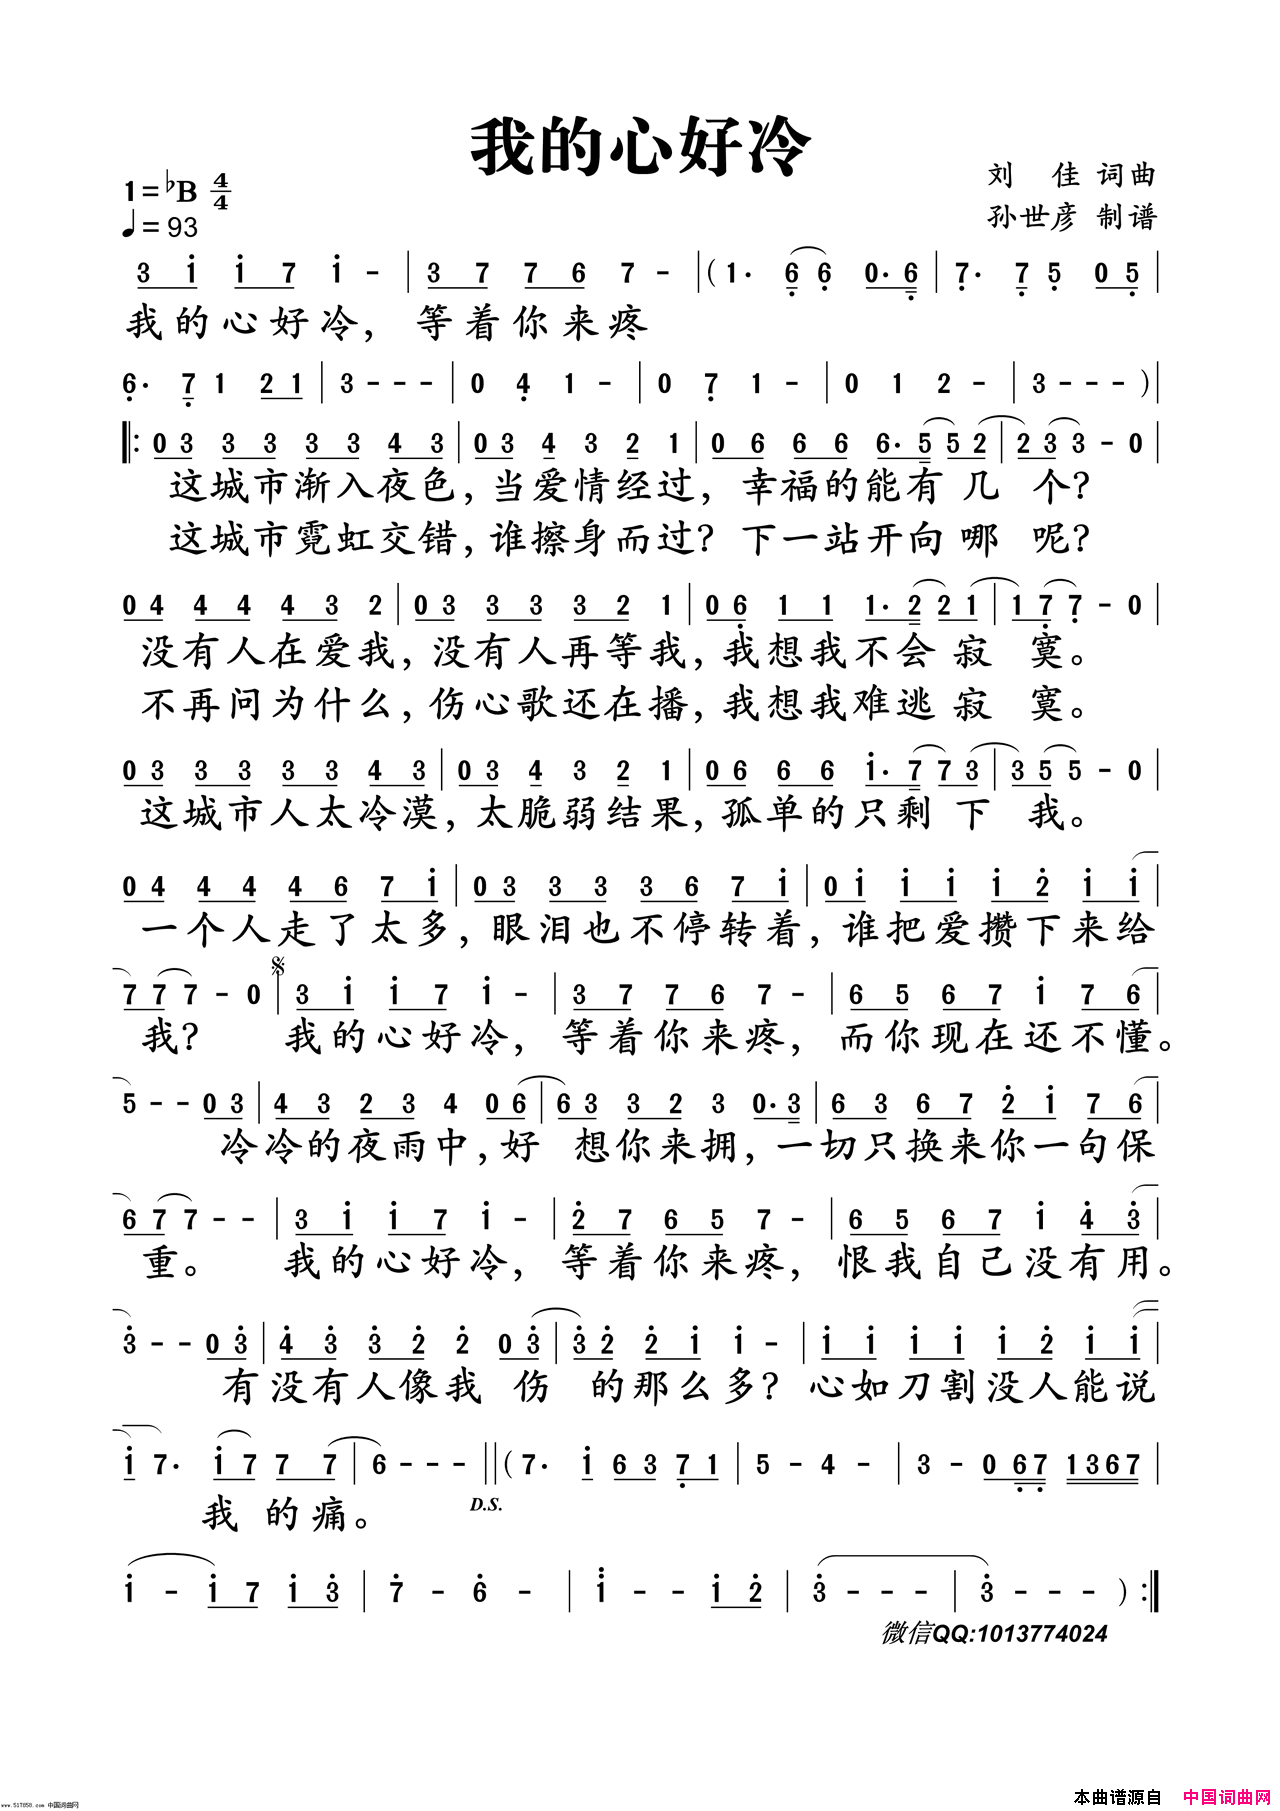 我的心好冷
刘 佳 词曲
孙世彦 制谱
1=♭B 4/4
♩=93
3 i i 7 i - | 3 7 7 6 7 - |( 1· 6 6 0·6 | 7· 7 5 0 5 |
我的心好冷，等着你来疼
6· 7 1 2 1 | 3 - - - | 0 4 1 - | 0 7 1 - | 0 1 2 - | 3 - - - )|
‖: 0 3 3 3 3 3 4 3 | 0 3 4 3 2 1 | 0 6 6 6 6· 5 5 2 | 2 3 3 - 0 |
这城市渐入夜色，当爱情经过，幸福的能有几个？
这城市霓虹交错，谁擦身而过？下一站开向哪呢？
0 4 4 4 4 3 2 | 0 3 3 3 3 2 1 | 0 6 1 1 1· 2 2 1 | 1 7 7 - 0 |
没有人在爱我，没有人再等我，我想我不会寂寞。
不再问为什么，伤心歌还在播，我想我难逃寂寞。
0 3 3 3 3 3 4 3 | 0 3 4 3 2 1 | 0 6 6 6 i· 7 7 3 | 3 5 5 - 0 |
这城市人太冷漠，太脆弱结果，孤单的只剩下我。
0 4 4 4 4 6 7 i | 0 3 3 3 3 6 7 i | 0 i i i i 2 i i |
一个人走了太多，眼泪也不停转着，谁把爱攒下来给
7 7 7 - 0 | 3 i i 7 i - | 3 7 7 6 7 - | 6 5 6 7 i 7 6 |
我？我的心好冷，等着你来疼，而你现在还不懂。
5 - - 0 3 | 4 3 2 3 4 0 6 | 6 3 3 2 3 0·3 | 6 3 6 7 2 i 7 6 |
冷冷的夜雨中，好想你来拥，一切只换来你一句保
6 7 7 - - | 3 i i 7 i - | 2 7 6 5 7 - | 6 5 6 7 i 4 3 |
重。我的心好冷，等着你来疼，恨我自己没有用。
3 - - 0 3 | 4 3 3 2 2 0 3 | 3 2 2 i i - | i i i i i 2 i i |
有没有人像我伤的那么多？心如刀割没人能说
i 7· i 7 7 7 | 6 - - - ‖( 7· i 6 3 7 1 | 5 - 4 - | 3 - 0 6 7 1 3 6 7 |
D.S.
我的痛。
i - i 7 i 3 | 7 - 6 - | i - - i 2 | 3 - - - | 3 - - - ) :‖
微信QQ:1013774024
www.517858.com 中国词曲网
本曲谱源自 中国词曲网